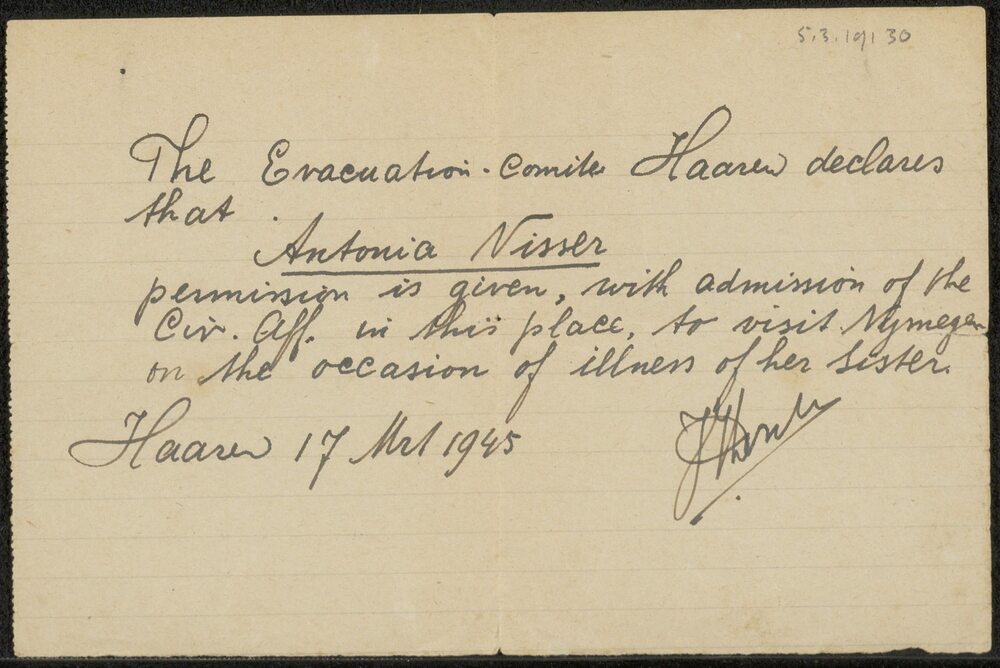 5.3.10/1 30
The Evacuation-comite Haaren declares
that
Antonia Visser
permission is given, with admission of the
Civ. Aff. in this place, to visit Nijmegen
on the occasion of illness of her sister.
Haaren 17 Mrt 1945